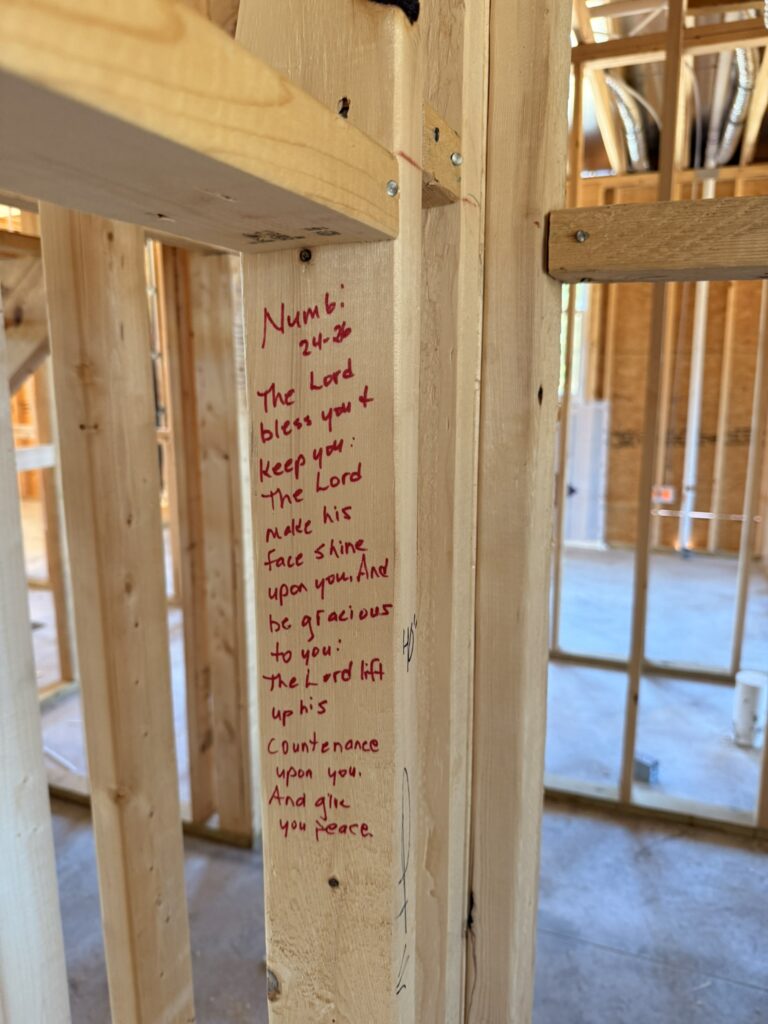 Numb:
24-26
The Lord
bless you &
keep you:
The Lord
make his
face shine
upon you, And
be gracious
to you:
The Lord lift
up his
countenance
upon you.
And give
you peace.